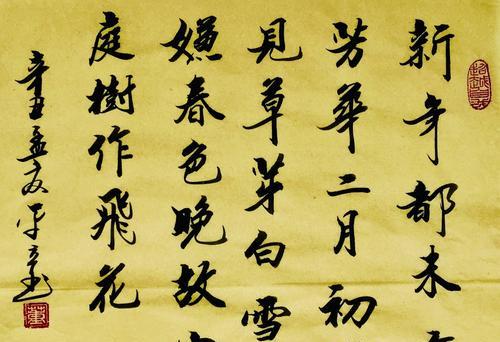 新年都未
芳華二月初
見草芽白雪
嫌春色晚故
庭樹作飛花
辛丑孟夏
董